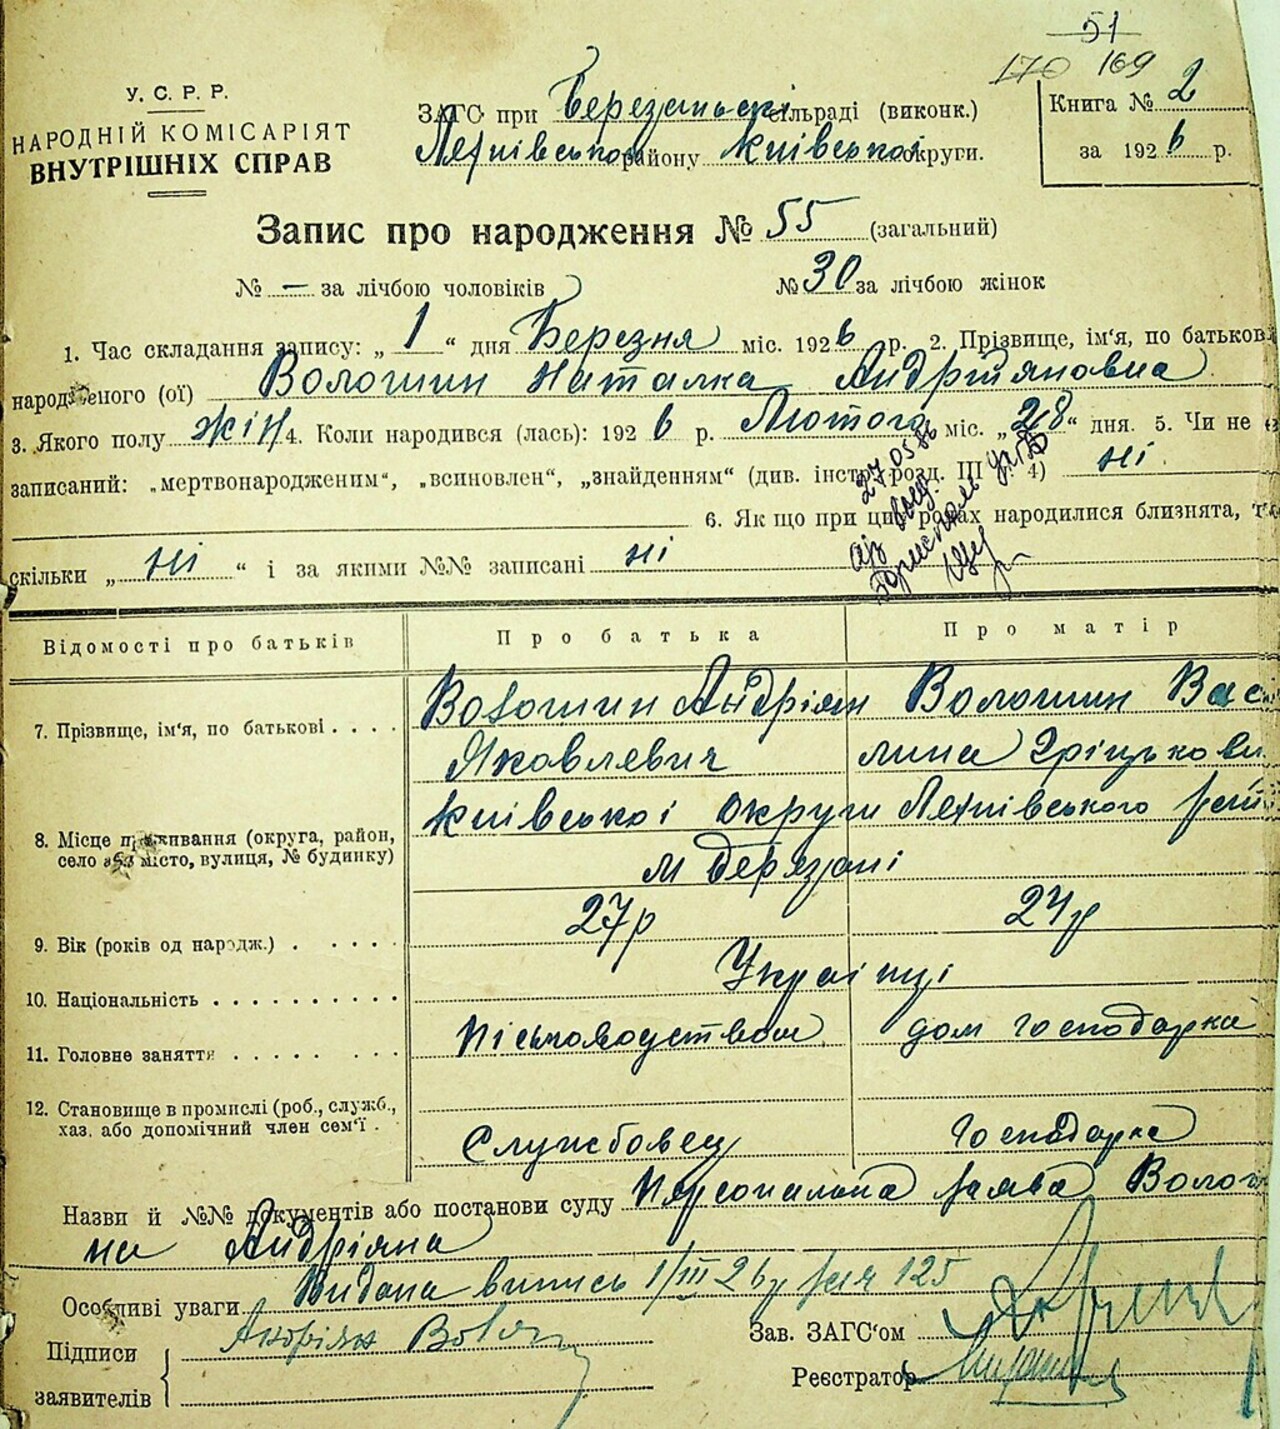 51
170 169
У. С. Р. Р.
НАРОДНІЙ КОМІСАРІЯТ
ВНУТРІШНІХ СПРАВ
ЗАГС при Березанські сільраді (виконк.)
району Київської округи.
Книга № 2
за 1926 р.
Запис про народження № 55 (загальний)
№ — за лічбою чоловіків № 30 за лічбою жінок
1. Час складання запису: „ 1 “ дня Березня міс. 1926 р. 2. Прізвище, ім'я, по батькові
народженого (ої) Волошин Наталка Андріяновна
3. Якого полу жін 4. Коли народився (лась): 1926 р. Лютого міс. „28“ дня. 5. Чи не є
записаний: „мертвонародженим“, „всиновлен“, „знайденням“ (див. інстр. розд. III п. 4) ні
6. Як що при цих родах народилися близнята, т
скільки „ ні “ і за якими №№ записані ні
27 05 86
Відомості про батьків Про батька Про матір
7. Прізвище, ім'я, по батькові . . . . Волошин Андріян Волошин Вас
Яковлевич лина Гріцькови
8. Місце проживання (округа, район, Київської округи
село або місто, вулиця, № будинку) м Березані
9. Вік (років од народж.) . . . . . 27р 24р
10. Національність . . . . . . . . . . Українці
11. Головне заняття . . . . . . . . Пісьмоводством дом господарка
12. Становище в промислі (роб., служб.,
хаз. або допомічний член сем'ї . Службовец Господарка
Назви й №№ документів або постанови суду Персональна заява Волош
на Андріяна
Особливі уваги Видана випись 1/III 26р за № 125
Підписи
заявителів Андріян Воло
Зав. ЗАГС'ом
Реєстратор